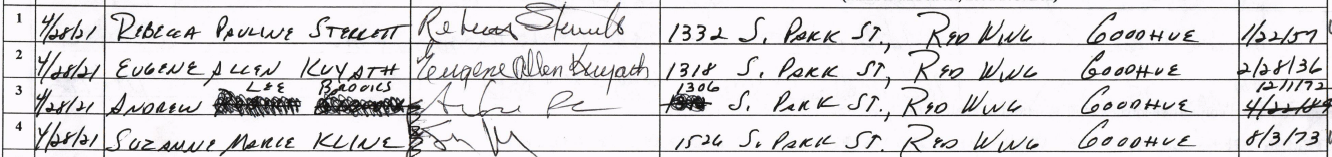 1 4/28/21 REBECCA PAULINE STERRETT 1332 S. PARK ST., RED WING GOODHUE 1/22/57
2 4/28/21 EUGENE ALLEN KUYATH Eugene Allen Kuyath 1318 S. PARK ST, RED WING GOODHUE 2/28/36
3 4/28/21 ANDREW LEE BROOKS 1306 S. PARK ST., RED WING GOODHUE 12/1/72
4 4/28/21 SUZANNE MARIE KLINE 1526 S. PARK ST. RED WING GOODHUE 8/3/73